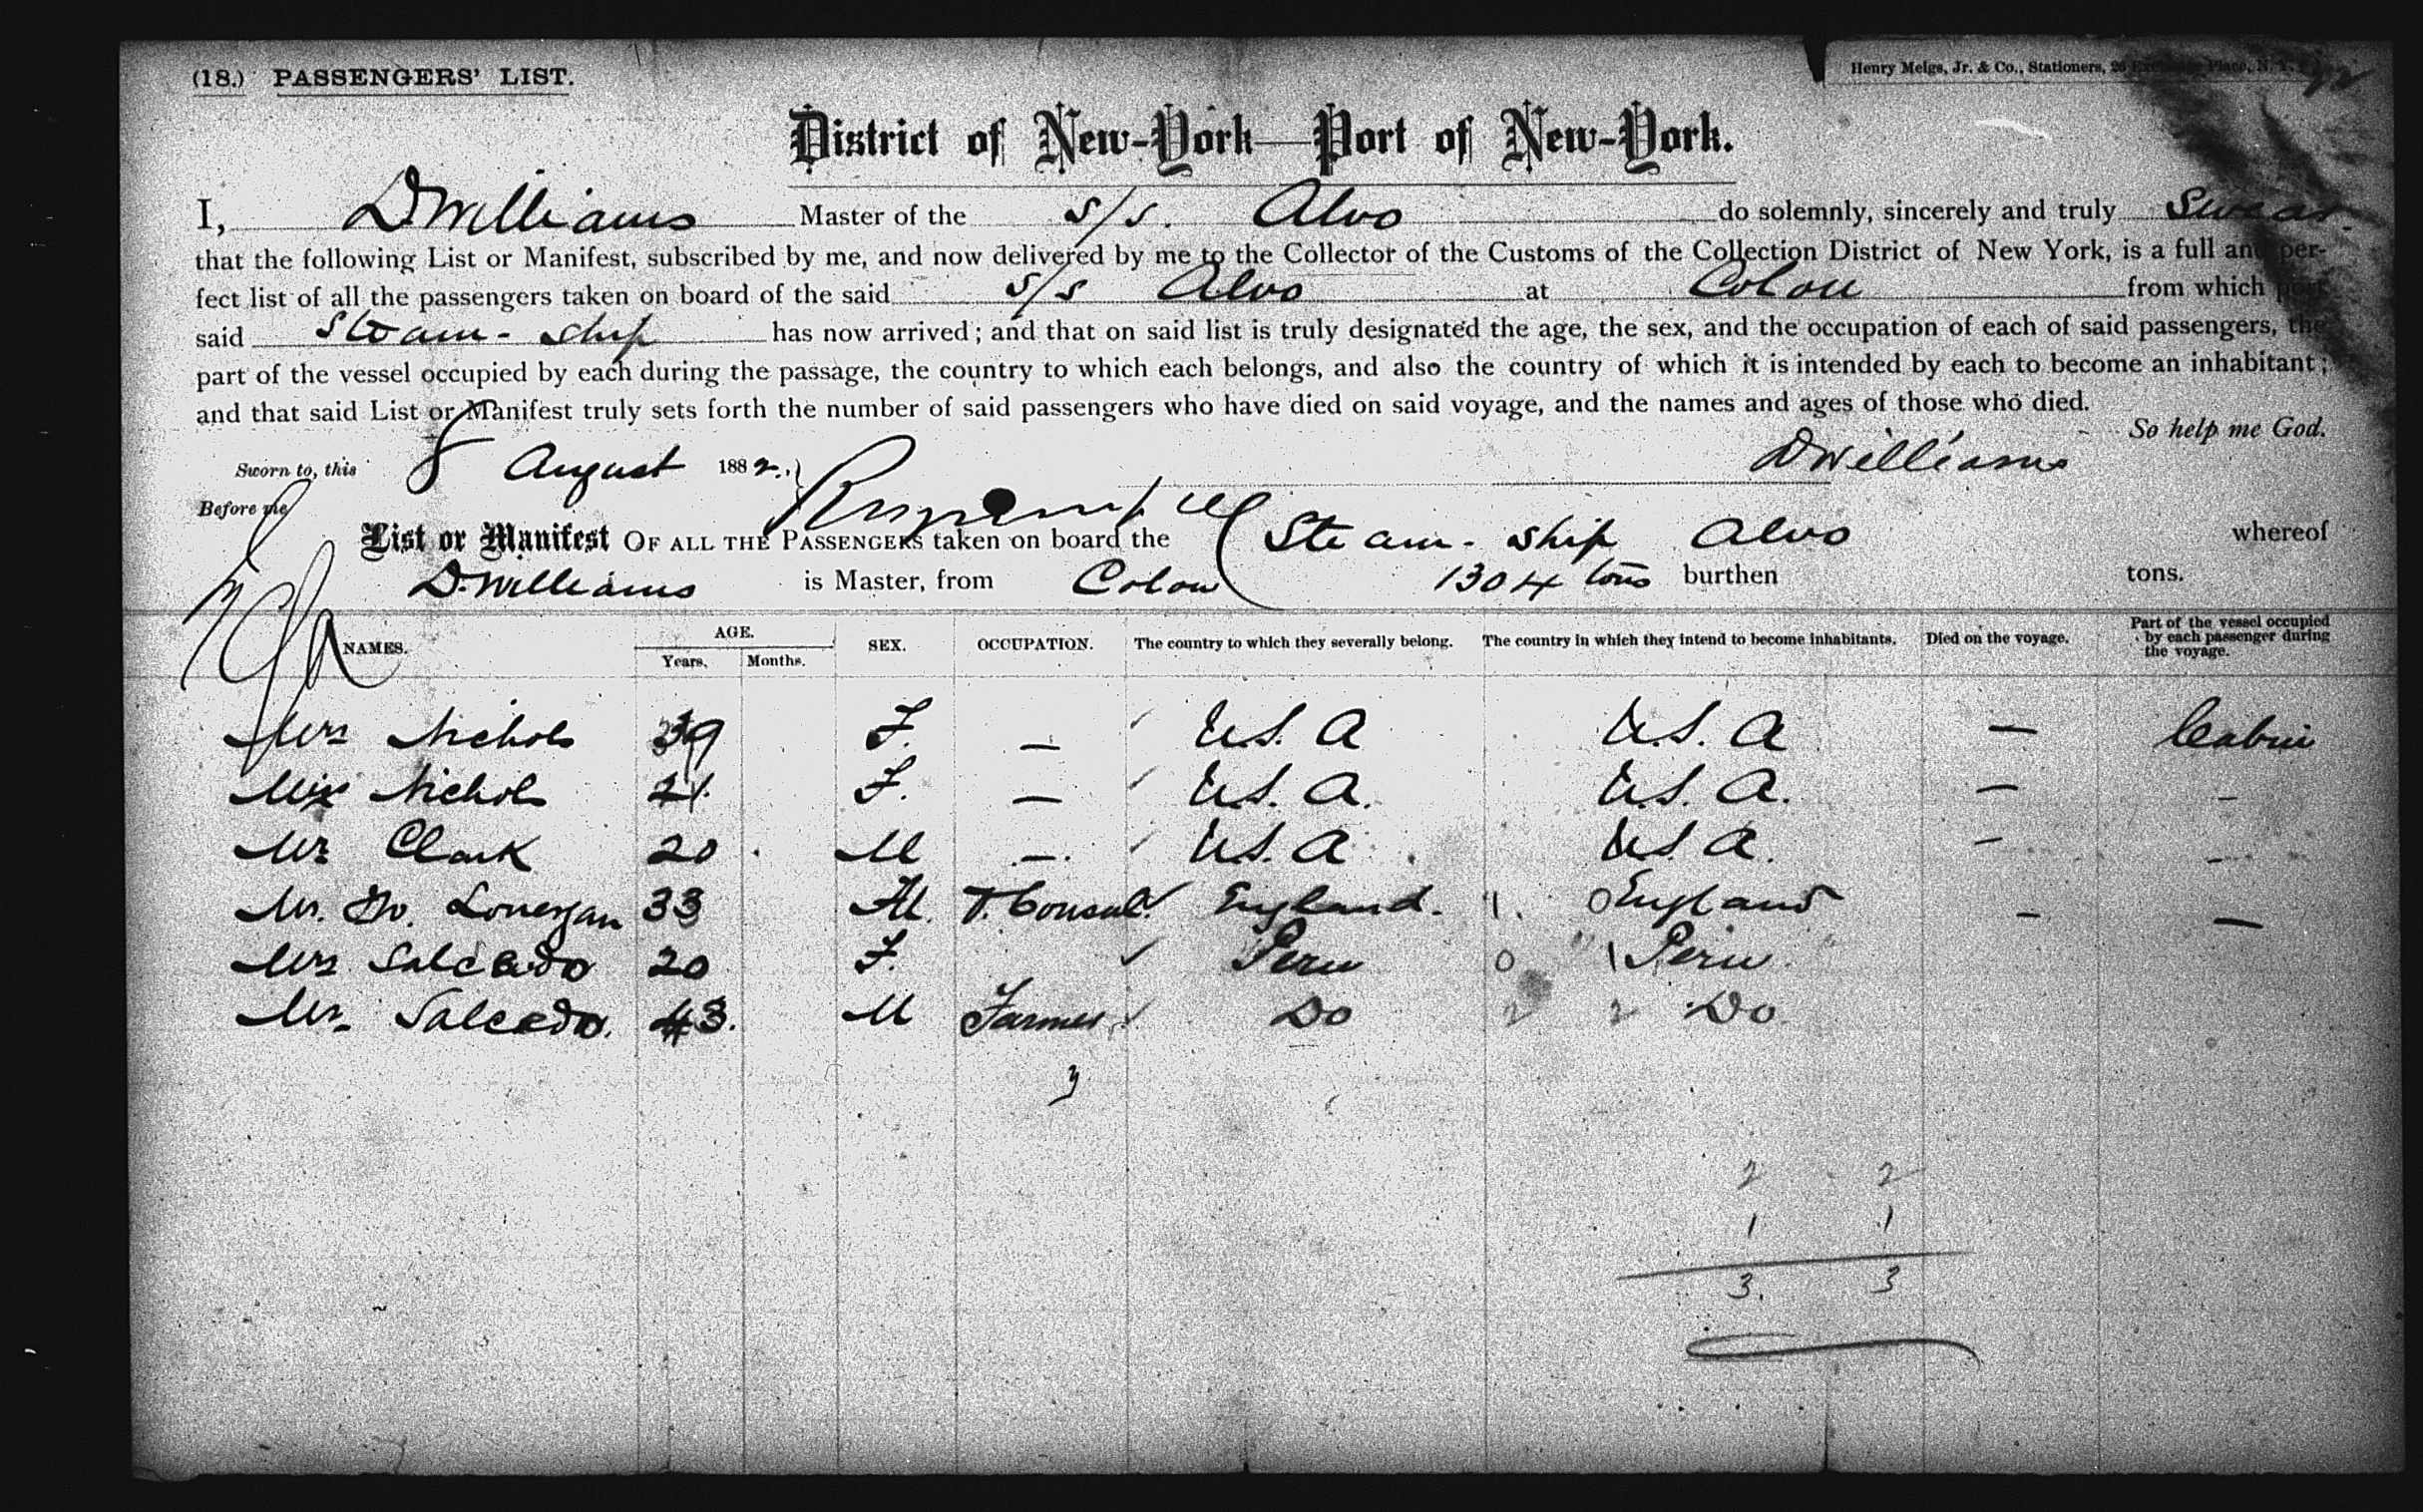 (18.) PASSENGERS' LIST.
Henry Meigs, Jr. & Co., Stationers, 26 Exchange Place, N. Y.
District of New-York—Port of New-York.
I, D Williams Master of the s/s. Alvo do solemnly, sincerely and truly Swear
that the following List or Manifest, subscribed by me, and now delivered by me to the Collector of the Customs of the Collection District of New York, is a full and per-
fect list of all the passengers taken on board of the said s/s Alvo at Colon from which port
said Steam-ship has now arrived; and that on said list is truly designated the age, the sex, and the occupation of each of said passengers, the
part of the vessel occupied by each during the passage, the country to which each belongs, and also the country of which it is intended by each to become an inhabitant;
and that said List or Manifest truly sets forth the number of said passengers who have died on said voyage, and the names and ages of those who died.
So help me God.
Sworn to, this 8 August 1882. D Williams
Before me
List or Manifest OF ALL THE PASSENGERS taken on board the Steam-ship Alvo whereof
D. Williams is Master, from Colon 1304 tons burthen tons.
NAMES. AGE. Years. Months. SEX. OCCUPATION. The country to which they severally belong. The country in which they intend to become inhabitants. Died on the voyage. Part of the vessel occupied by each passenger during the voyage.
Mrs Nichols 39 F. — U.S. A U.S. A — Cabin
Miss Nichols 21 F. — U.S. A. U.S. A. — —
Mr Clark 20 M —. U.S. A U.S. A. — —
Mr. Lonergan 33 M. V. Consul England. 1. 0 England — —
Mrs Salcedo 20 F. Peru 0 1 Peru
Mr. Salcedo. 43. M Farmer Do 2 2 Do
3
2 2
1 1
3. 3